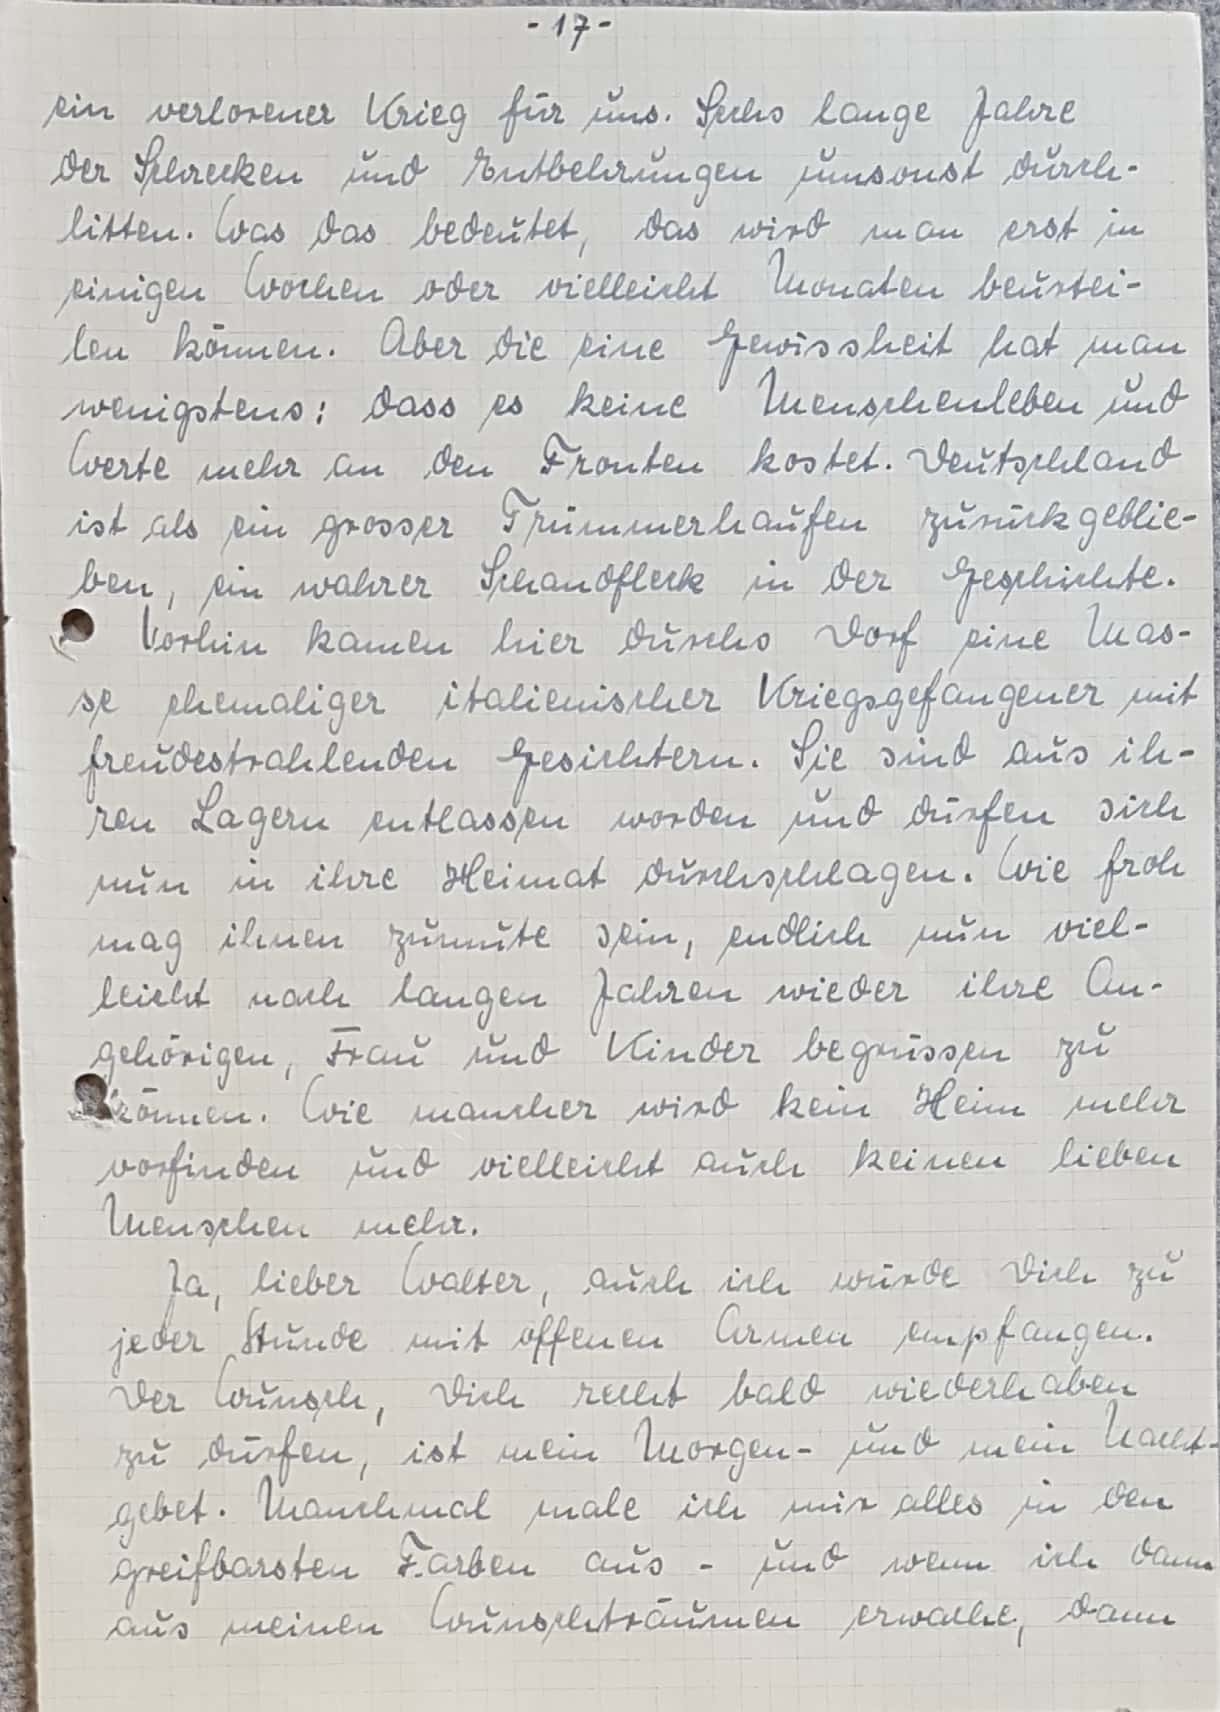 - 17 -
ein verlorener Krieg für uns. Sechs lange Jahre
der Schrecken und Entbehrungen umsonst durch-
litten. Was das bedeutet, das wird man erst in
einigen Wochen oder vielleicht Monaten beurtei-
len können. Aber die eine Gewissheit hat man
wenigstens: dass es keine Menschenleben und
Werte mehr an den Fronten kostet. Deutschland
ist als ein grosser Trümmerhaufen zurückgeblie-
ben, ein wahrer Schandfleck in der Geschichte.
Vorhin kamen hier durchs Dorf eine Mas-
se ehemaliger italienischer Kriegsgefangener mit
freudestrahlenden Gesichtern. Sie sind aus ih-
ren Lagern entlassen worden und dürfen sich
nun in ihre Heimat durchschlagen. Wie froh
mag ihnen zumute sein, endlich nun viel-
leicht nach langen Jahren wieder ihre An-
gehörigen, Frau und Kinder begrüssen zu
können. Wie mancher wird kein Heim mehr
vorfinden und vielleicht auch keinen lieben
Menschen mehr.
Ja, lieber Walter, auch ich würde Dich zu
jeder Stunde mit offenen Armen empfangen.
Der Wunsch, Dich recht bald wiederhaben
zu dürfen, ist mein Morgen- und mein Nacht-
gebet. Manchmal male ich mir alles in den
greifbarsten Farben aus - und wenn ich dann
aus meinen Wunschträumen erwache, dann